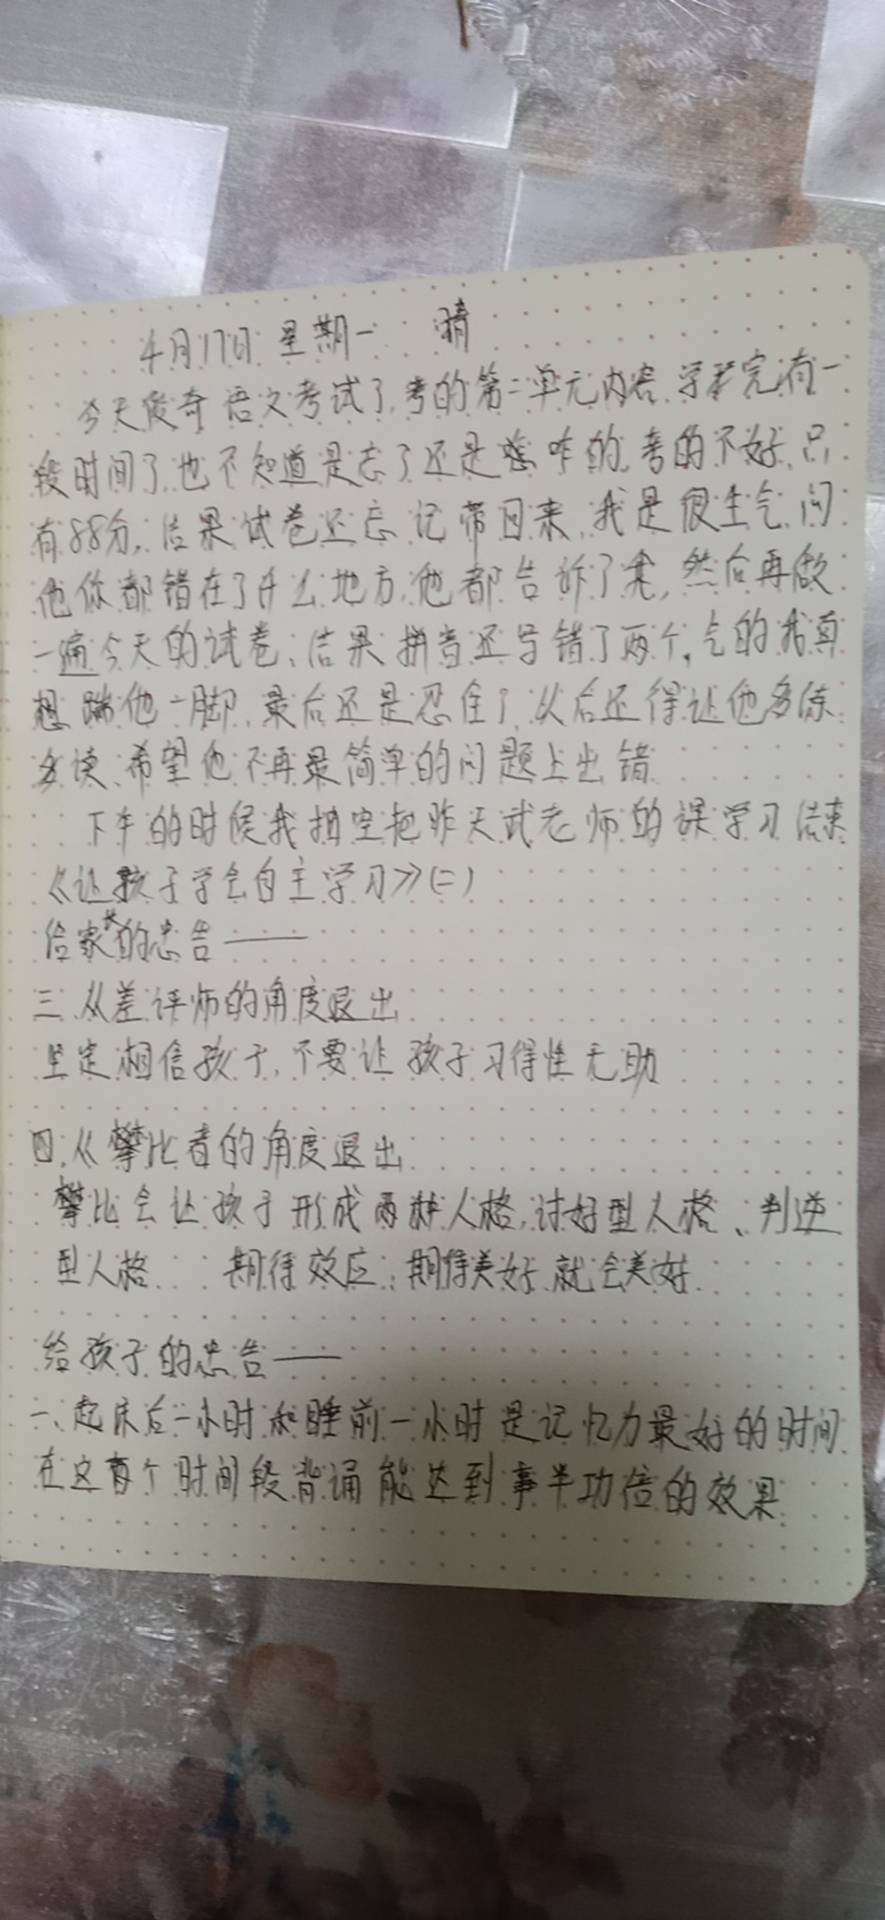 4月17日 星期一 晴
今天俊奇语文考试了,考的第二单元内容,学完有一
段时间了,也不知道是忘了还是咋的,考的不好,只
有88分,结果试卷还忘记带回来,我是很生气,问
他你都错在了什么地方,他都告诉了我,然后再做
一遍今天的试卷,结果拼音还写错了两个,气的我真
想踹他一脚,最后还是忍住了,从后还得让他多练
多读,希望他不再最简单的问题上出错
下午的时候我抽空把昨天武老师的课学习结束
《让孩子学会自主学习》(二)
给家长的忠告——
三、从差评师的角度退出
坚定相信孩子,不要让孩子习得性无助
四、从攀比者的角度退出
攀比会让孩子形成两种人格,讨好型人格、判逆
型人格 期待效应:期待美好就会美好
给孩子的忠告——
一、起床后一小时和睡前一小时是记忆力最好的时间
在这个时间段背诵能达到事半功倍的效果